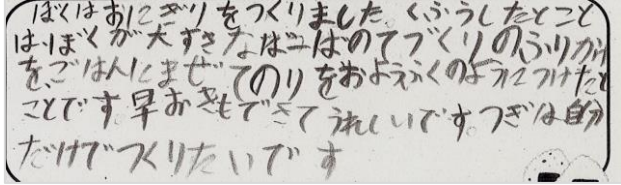 ぼくはおにぎりをつくりました。くふうしたとこと
はぼくが大すきなばーばのてづくりのふりかけ
を、ごはんにまぜてのりをおようふくのようにつけたと
ことです。早おきもできてうれしいです。つぎは自分
だけでつくりたいです